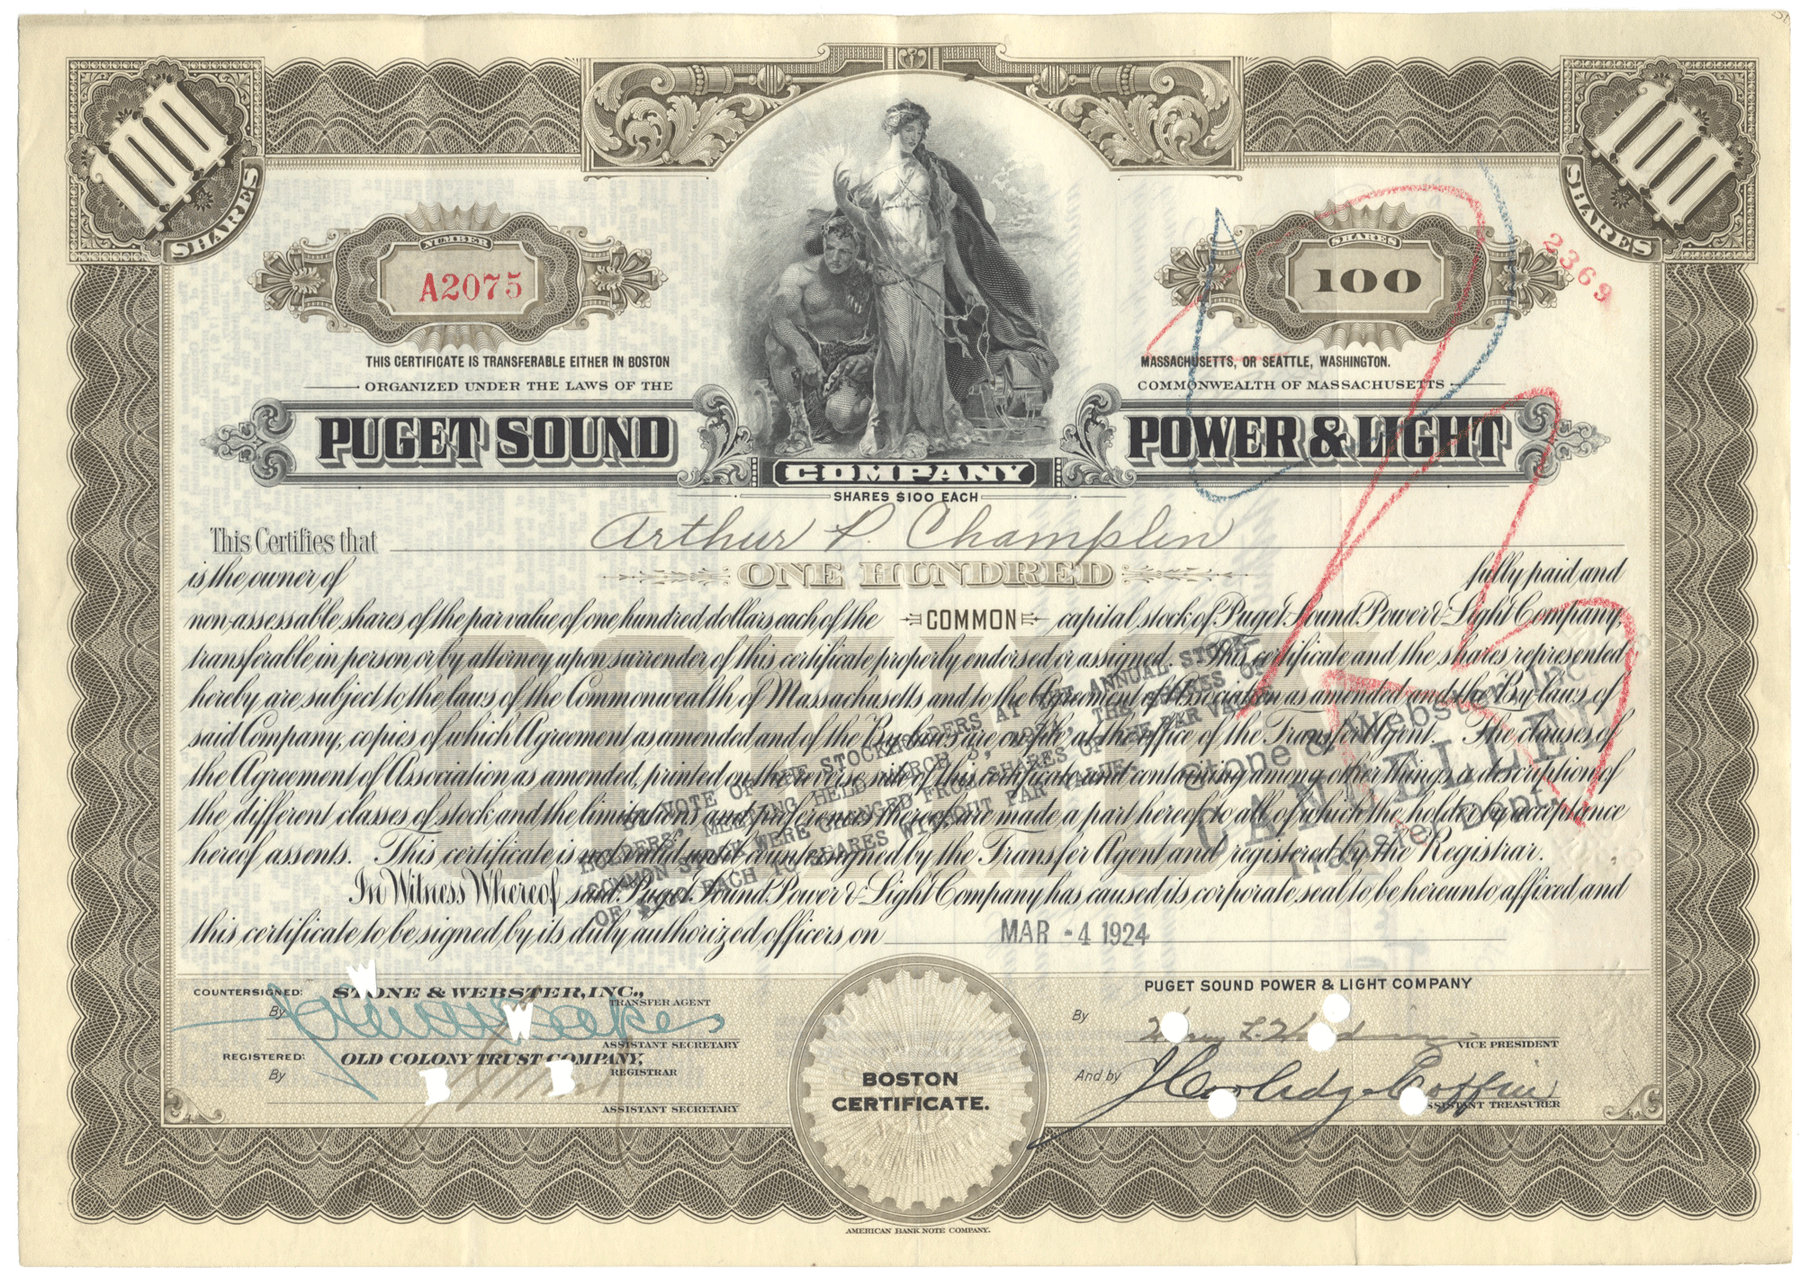 100 SHARES
100 SHARES
NUMBER
A2075
SHARES
100
2369
THIS CERTIFICATE IS TRANSFERABLE EITHER IN BOSTON MASSACHUSETTS, OR SEATTLE, WASHINGTON.
ORGANIZED UNDER THE LAWS OF THE COMMONWEALTH OF MASSACHUSETTS
PUGET SOUND POWER & LIGHT
COMPANY
SHARES $100 EACH
This Certifies that Arthur P. Champlin
is the owner of ONE HUNDRED fully paid and
non-assessable shares of the par value of one hundred dollars each of the COMMON capital stock of Puget Sound Power & Light Company,
transferable in person or by attorney upon surrender of this certificate properly endorsed or assigned. This certificate and the shares represented
hereby are subject to the laws of the Commonwealth of Massachusetts and to the Agreement of Association as amended and the By-laws of
said Company, copies of which Agreement as amended and of the By-laws are on file at the office of the Transfer Agent. The clauses of
the Agreement of Association as amended, printed on the reverse side of this certificate and containing among other things a description of
the different classes of stock and the limitations and preferences thereof are made a part hereof, to all of which the holder by acceptance
hereof assents. This certificate is not valid until countersigned by the Transfer Agent and registered by the Registrar.
In Witness Whereof said Puget Sound Power & Light Company has caused its corporate seal to be hereunto affixed and
this certificate to be signed by its duly authorized officers on MAR -4 1924
COMMON
BY VOTE OF THE STOCKHOLDERS AT THE ANNUAL STOCK-
HOLDERS' MEETING HELD MARCH 5, THE SHARES OF
COMMON STOCK WERE CHANGED FROM SHARES OF THE PAR VALUE
OF $100 EACH TO SHARES WITHOUT PAR VALUE.
Stone & Webster Inc
CANCELLED
Transfer Dept.
COUNTERSIGNED: STONE & WEBSTER, INC.,
TRANSFER AGENT
By
ASSISTANT SECRETARY
REGISTERED: OLD COLONY TRUST COMPANY,
REGISTRAR
By
ASSISTANT SECRETARY
W
W
B
B
BOSTON
CERTIFICATE.
PUGET SOUND POWER & LIGHT COMPANY
By
VICE PRESIDENT
And by J Coolidge Coffin
ASSISTANT TREASURER
AMERICAN BANK NOTE COMPANY.